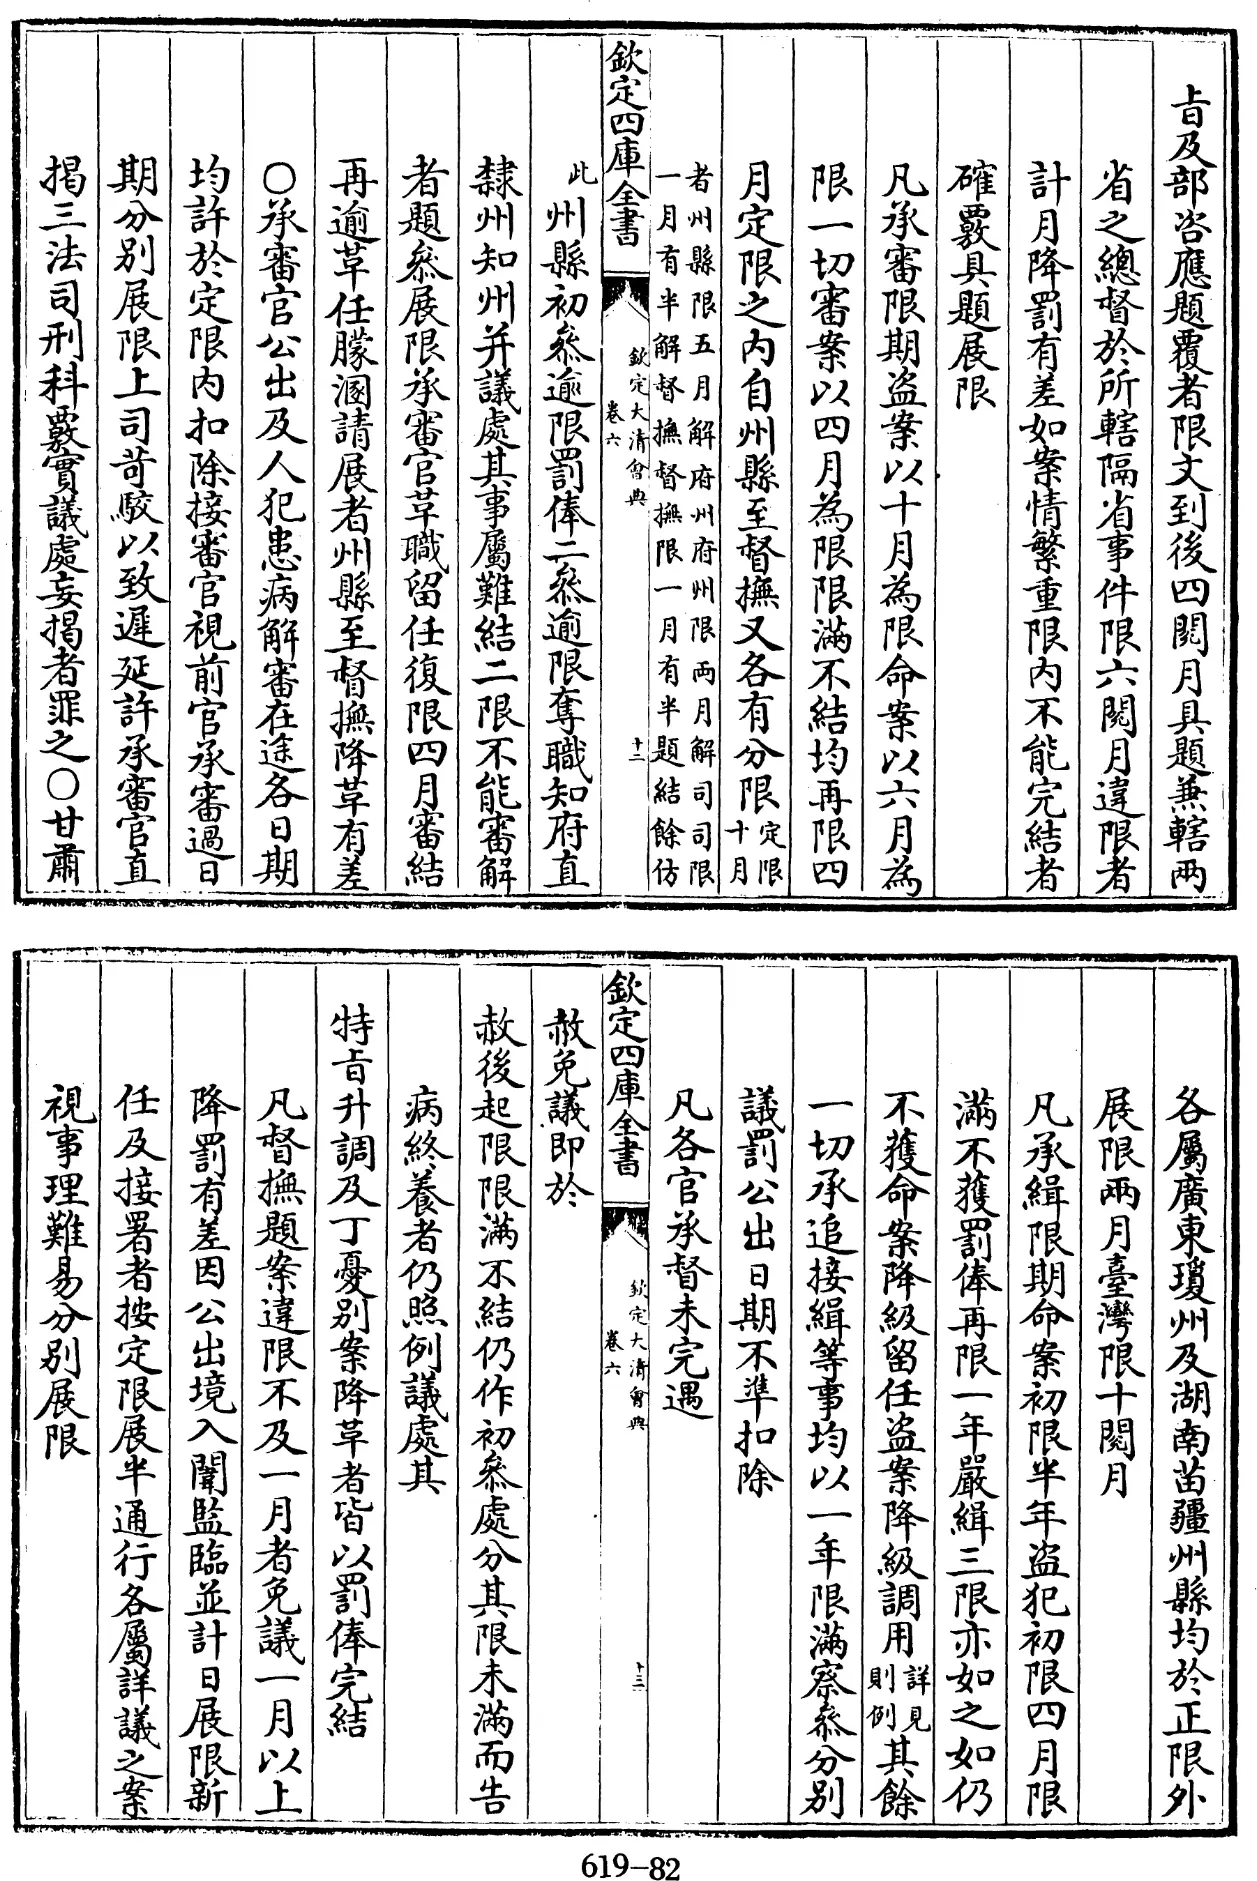 旨及部咨應題覆者限文到後四閱月具題兼轄兩
省之總督於所轄隔省事件限六閱月違限者
計月降罰有差如案情繁重限內不能完結者
確覈具題展限
凡承審限期盜案以十月為限命案以六月為
限一切審案以四月為限限滿不結均再限四
月定限之內自州縣至督撫又各有分限定限十月
者州縣限五月解府州府州限兩月解司司限
一月有半解督撫督撫限一月有半題結餘仿
欽定四庫全書
欽定大清會典
卷六
十二
此州縣初叅逾限罰俸二叅逾限奪職知府直
隸州知州并議處其事屬難結二限不能審解
者題叅展限承審官革職留任復限四月審結
再逾革任朦溷請展者州縣至督撫降革有差
〇承審官公出及人犯患病解審在途各日期
均許於定限內扣除接審官視前官承審過日
期分別展限上司苛駮以致遲延許承審官直
揭三法司刑科覈實議處妄揭者罪之〇甘肅
各屬廣東瓊州及湖南苗疆州縣均於正限外
展限兩月臺灣限十閱月
凡承緝限期命案初限半年盜犯初限四月限
滿不獲罰俸再限一年嚴緝三限亦如之如仍
不獲命案降級留任盜案降級調用詳見則例其餘
一切承追接緝等事均以一年限滿察叅分別
議罰公出日期不準扣除
凡各官承督未完遇
欽定四庫全書
欽定大清會典
卷六
十三
赦免議即於
赦後起限限滿不結仍作初叅處分其限未滿而告
病終養者仍照例議處其
特旨升調及丁憂別案降革者皆以罰俸完結
凡督撫題案違限不及一月者免議一月以上
降罰有差因公出境入闈監臨並計日展限新
任及接署者按定限展半通行各屬詳議之案
視事理難易分別展限
619-82